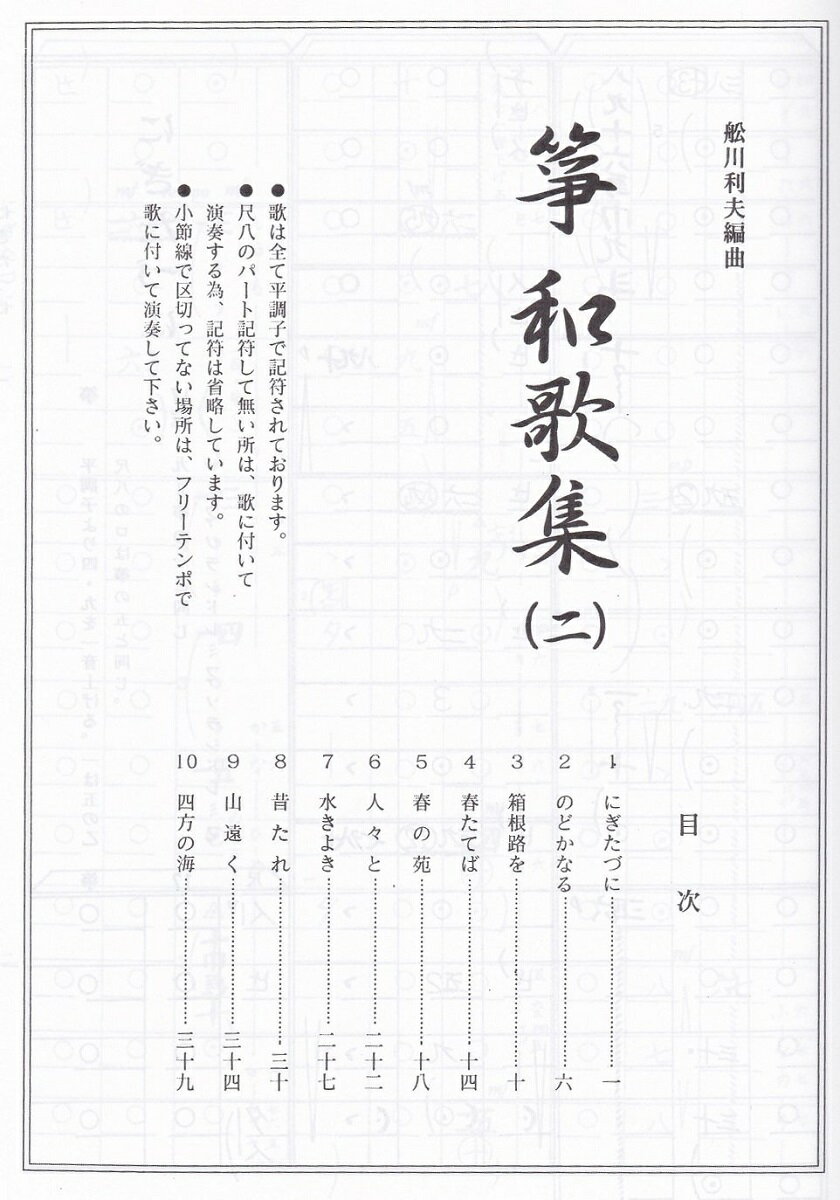 舩川利夫編曲
箏 和歌集(二)
●歌は全て平調子で記符されております。
●尺八のパート記符して無い所は、歌に付いて
演奏する為、記符は省略しています。
●小節線で区切ってない場所は、フリーテンポで
歌に付いて演奏して下さい。
目 次
1 にぎたづに……一
2 のどかなる……六
3 箱根路を……十
4 春たてば……十四
5 春の苑……十八
6 人々と……二十二
7 水きよき……二十七
8 昔たれ……三十
9 山遠く……三十四
10 四方の海……三十九